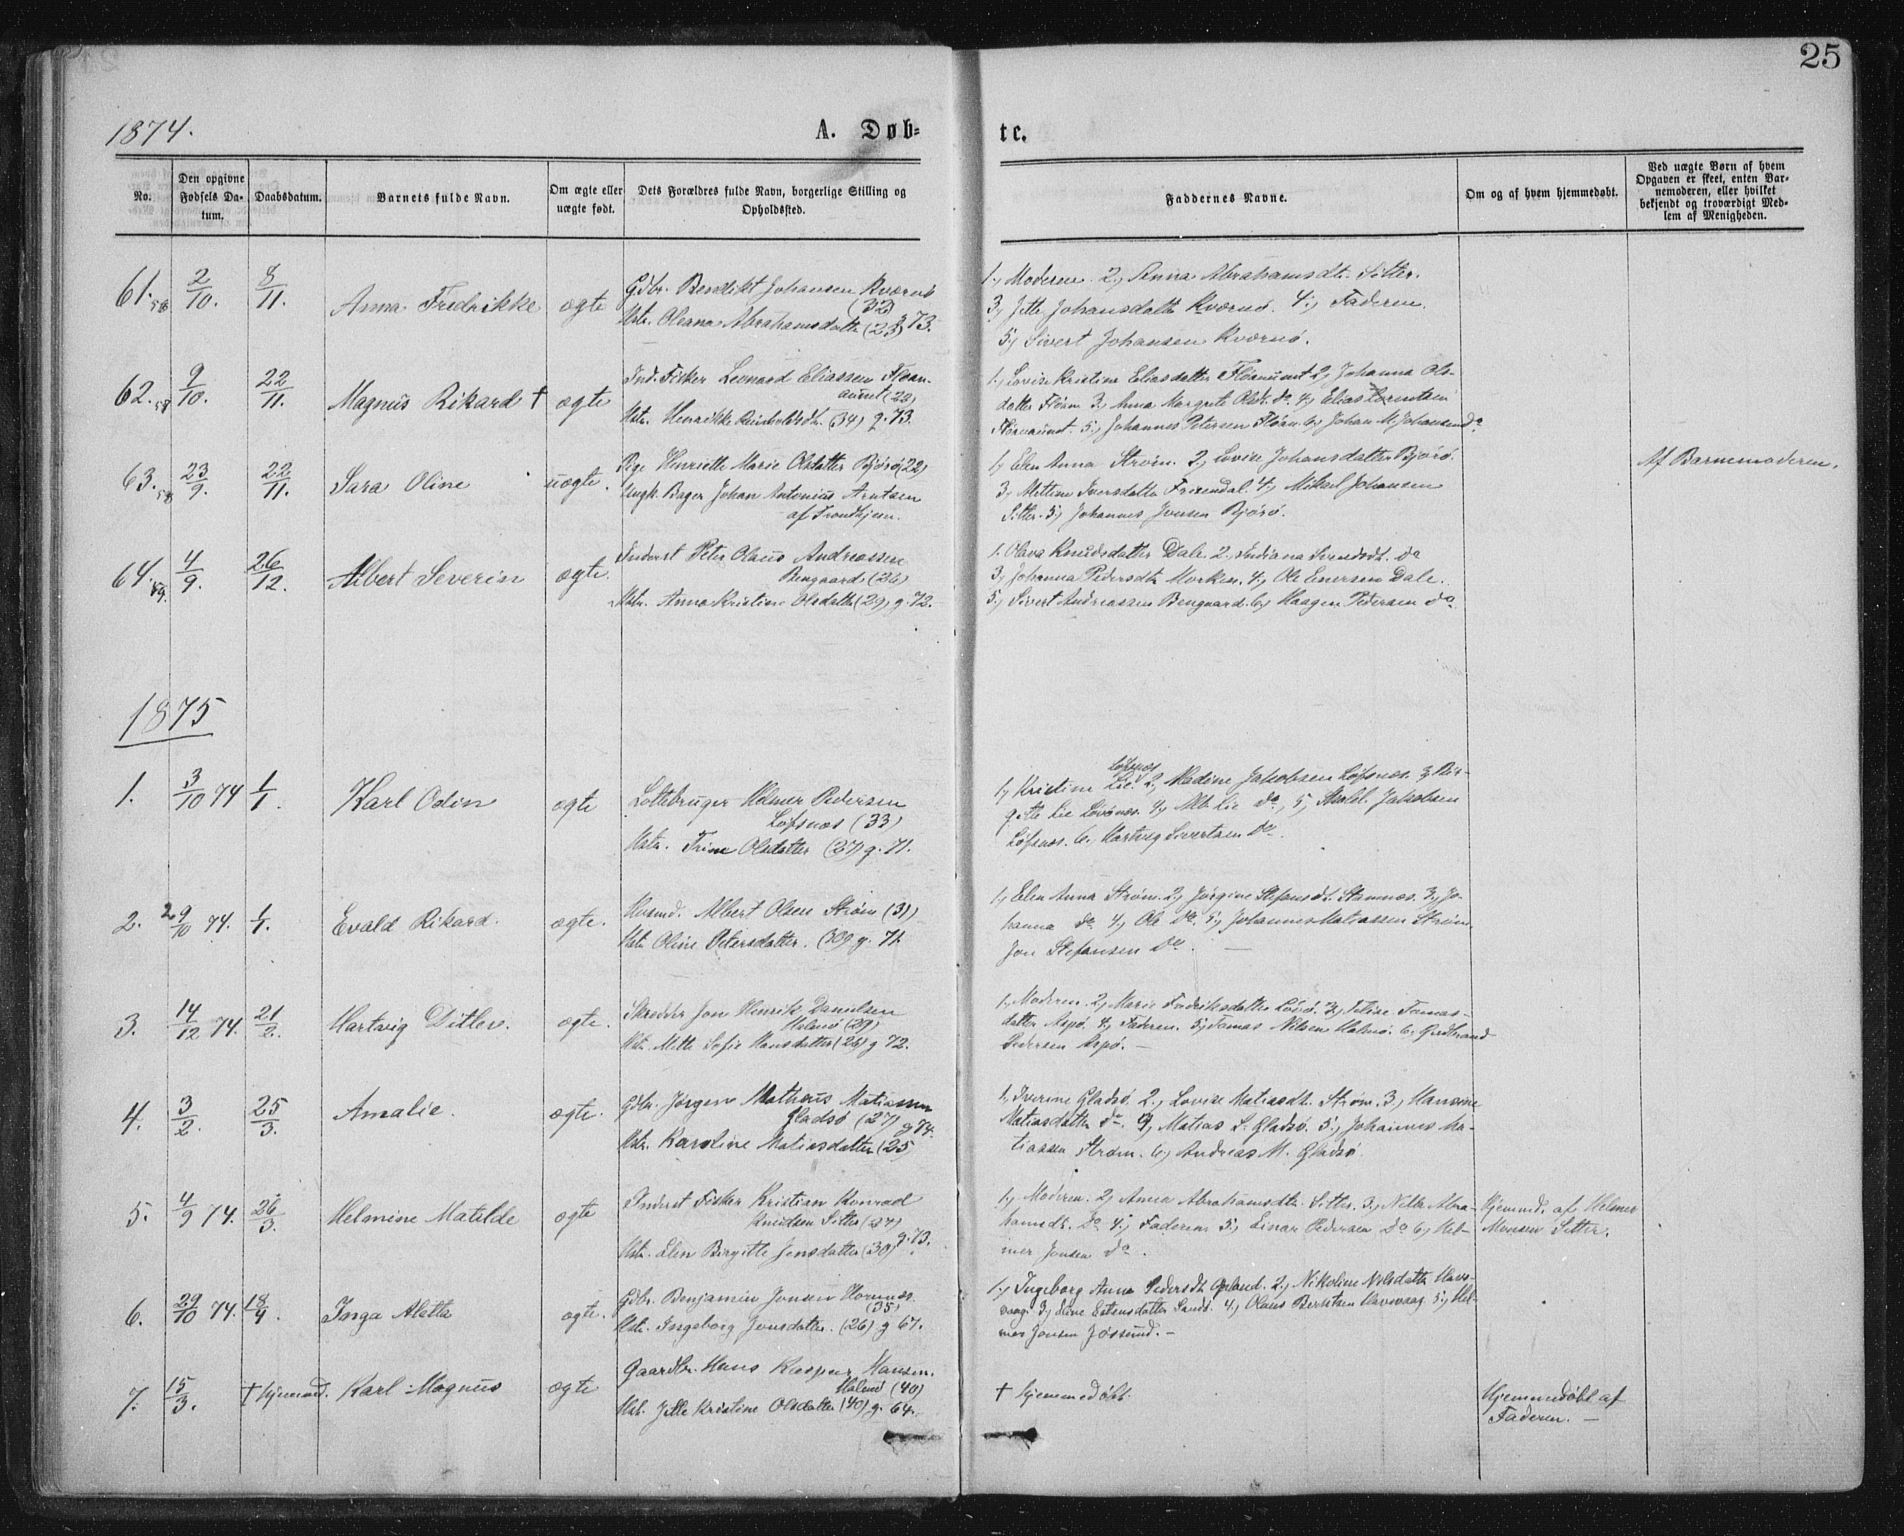 25
1874.
A. Døb-
te.
No.
Den opgivne Fødsels Da-tum.
Daabsdatum.
Barnets fulde Navn.
Om ægte eller uægte født.
Dets Forældres fulde Navn, borgerlige Stilling og Opholdssted.
Faddernes Navne.
Om og af hvem hjemmedøbt.
Ved uægte Børn af hvem Opgaven er skeet, enten Bar-nemoderen, eller hvilket bekjendt og troværdigt Med-lem af Menigheden.
61. 2/10. 8/11. Anna Fredrikke ægte
Gdbr. Benedikt Johansen Kværnø (32)
Hstr. Oleana Abrahamsdatter (23) g 73.
1, Moderen 2, Anna Abrahamsdt. Sitter.
3, Jette Johansdatter Kvernø. 4, Faderen.
5, Sivert Johansen Kvernø.
62. 9/10. 22/11. Magnus Rikard † ægte
Ind. Fisker Leonard Eliassen Fløan-
aunet (22)
Hstr. Henrikke Reinholdsdt. (34) g. 73.
1, Lovise Kristine Eliasdatter 2, Johanna Ols-
datter 3, Anna Margrete Olsd. do 4, Elias
5, Johannes Petersen 6, Johan M. Johansen do
63. 23/9. 22/11. Sara Oline uægte.
Pige Henriette Marie Olsdatter Bjørø (22)
Ungk. Bager Johan Antonius Arntsen
af Trondhjem.
1, Elen Anna Strøm. 2, Lovise Johansdatter Bjørø.
3, Mettine Iversdatter 4, Mikael Johansen
Sitter. 5, Johannes Iversen Bjørø.
Af Barnemoderen.
64. 4/9. 26/12. Albert Severin ægte.
Inderst Peter Olaus Andreassen
Bengaard (26)
Hstr. Anna Kristine Olsdatter (29) g. 72.
1. Olava Knudsdatter Dale 2, do
3, Johanna Pedersdt. Morken. 4, Ole Enersen Dale.
5, Sivert Andreassen Bengaard. 6, Haagen Pedersen do
1875
1. 3/10 74 1/1. Karl Odin ægte
Helmer Pedersen
Løfsnæs (33)
Hstr. Trine Olsdatter (37) g. 71.
Løfsnæs
1, Kristine Lie. 2, Madine Jakobsen Løfsnæs. 3, Bir-
gitte Lie 4, Lie do, 5, Jakobsen
Løfsnæs. 6, Hartvig Sivertsen do.
2. 29/10 74. 1/1. Evald Rikard. ægte.
Husmd. Albert Olsen Strøm (31)
Hstr. Oline Petersdatter. (30) g. 71.
1, Elen Anna Strøm. 2, Jørgine Stefansdt. Stamnæs. 3, Jo-
hanna do 4, Ole do. 5, Johannes Matiassen Strøm.
Jon Stefansen do.
3. 14/12 74. 21/2. Hartvig Ditlev. ægte.
Skredder Jon Henrik Danielsen
Halmø (29)
Hstr. Mette Sofie Hansdatter (26) g 72.
1, Moderen. 2, Marie Fredriksdatter 3, Tomas-
datter Aspø. 4, Faderen. 5, Tomas Nilsen Halmø. 6, Gudbrand
Pedersen Aspø. —
4. 3/2. 25/3. Amalie. ægte.
Gdbr. Jørgen Matheus Matiassen
Gladsø (27) g 74.
Hstr. Karoline Matiasdatter (25)
1, Iverine Gladsø. 2, Lovise Matiasdt. Strøm. 3, Hansine
Matiasdatter do. 4, Matias S. Gladsø. 5, Johannes Ma-
tiassen Strøm. 6, Andreas M. Gladsø
5. 4/9 74. 26/3. Helmine Matilde ægte
Inderst Fisker Kristian Konrad
Knudsen Sitter (27)
Hstr. Elen Birgitte Jensdatter (30) g. 73.
1, Moderen. 2, Anna Abrahamsdt. Sitter. 3, Abra-
hamsdt. do 4, Faderen 5, Einar Pedersen do 6, Hel-
mer Jensen do.
Hjemmd. af Helmer
Monsen Sitter.
6. 29/10 74. 18/4. Inga Aletta ægte.
Gdbr. Benjamin Jonsen Hornnes.
(35)
Hstr. Ingeborg Jensdatter. (26) g 67.
1, Ingeborg Anna Pedersdt. Opland. 2, Nikoline Nilsdatter Havs-
vaag. 3, Estensdatter 4, Olaus Berntsen Havsvaag. 5, Hel-
mer Jensen Jøssund. —
7. 15/3. † hjemmed. Karl Magnus ægte
Gaardbr. Hans Kasper Hansen.
Halmø (40)
Hstr. Jette Kristine Olsdatter (40) g. 64.
† hjemmedøbt.
Hjemmedøbt af
Faderen. —